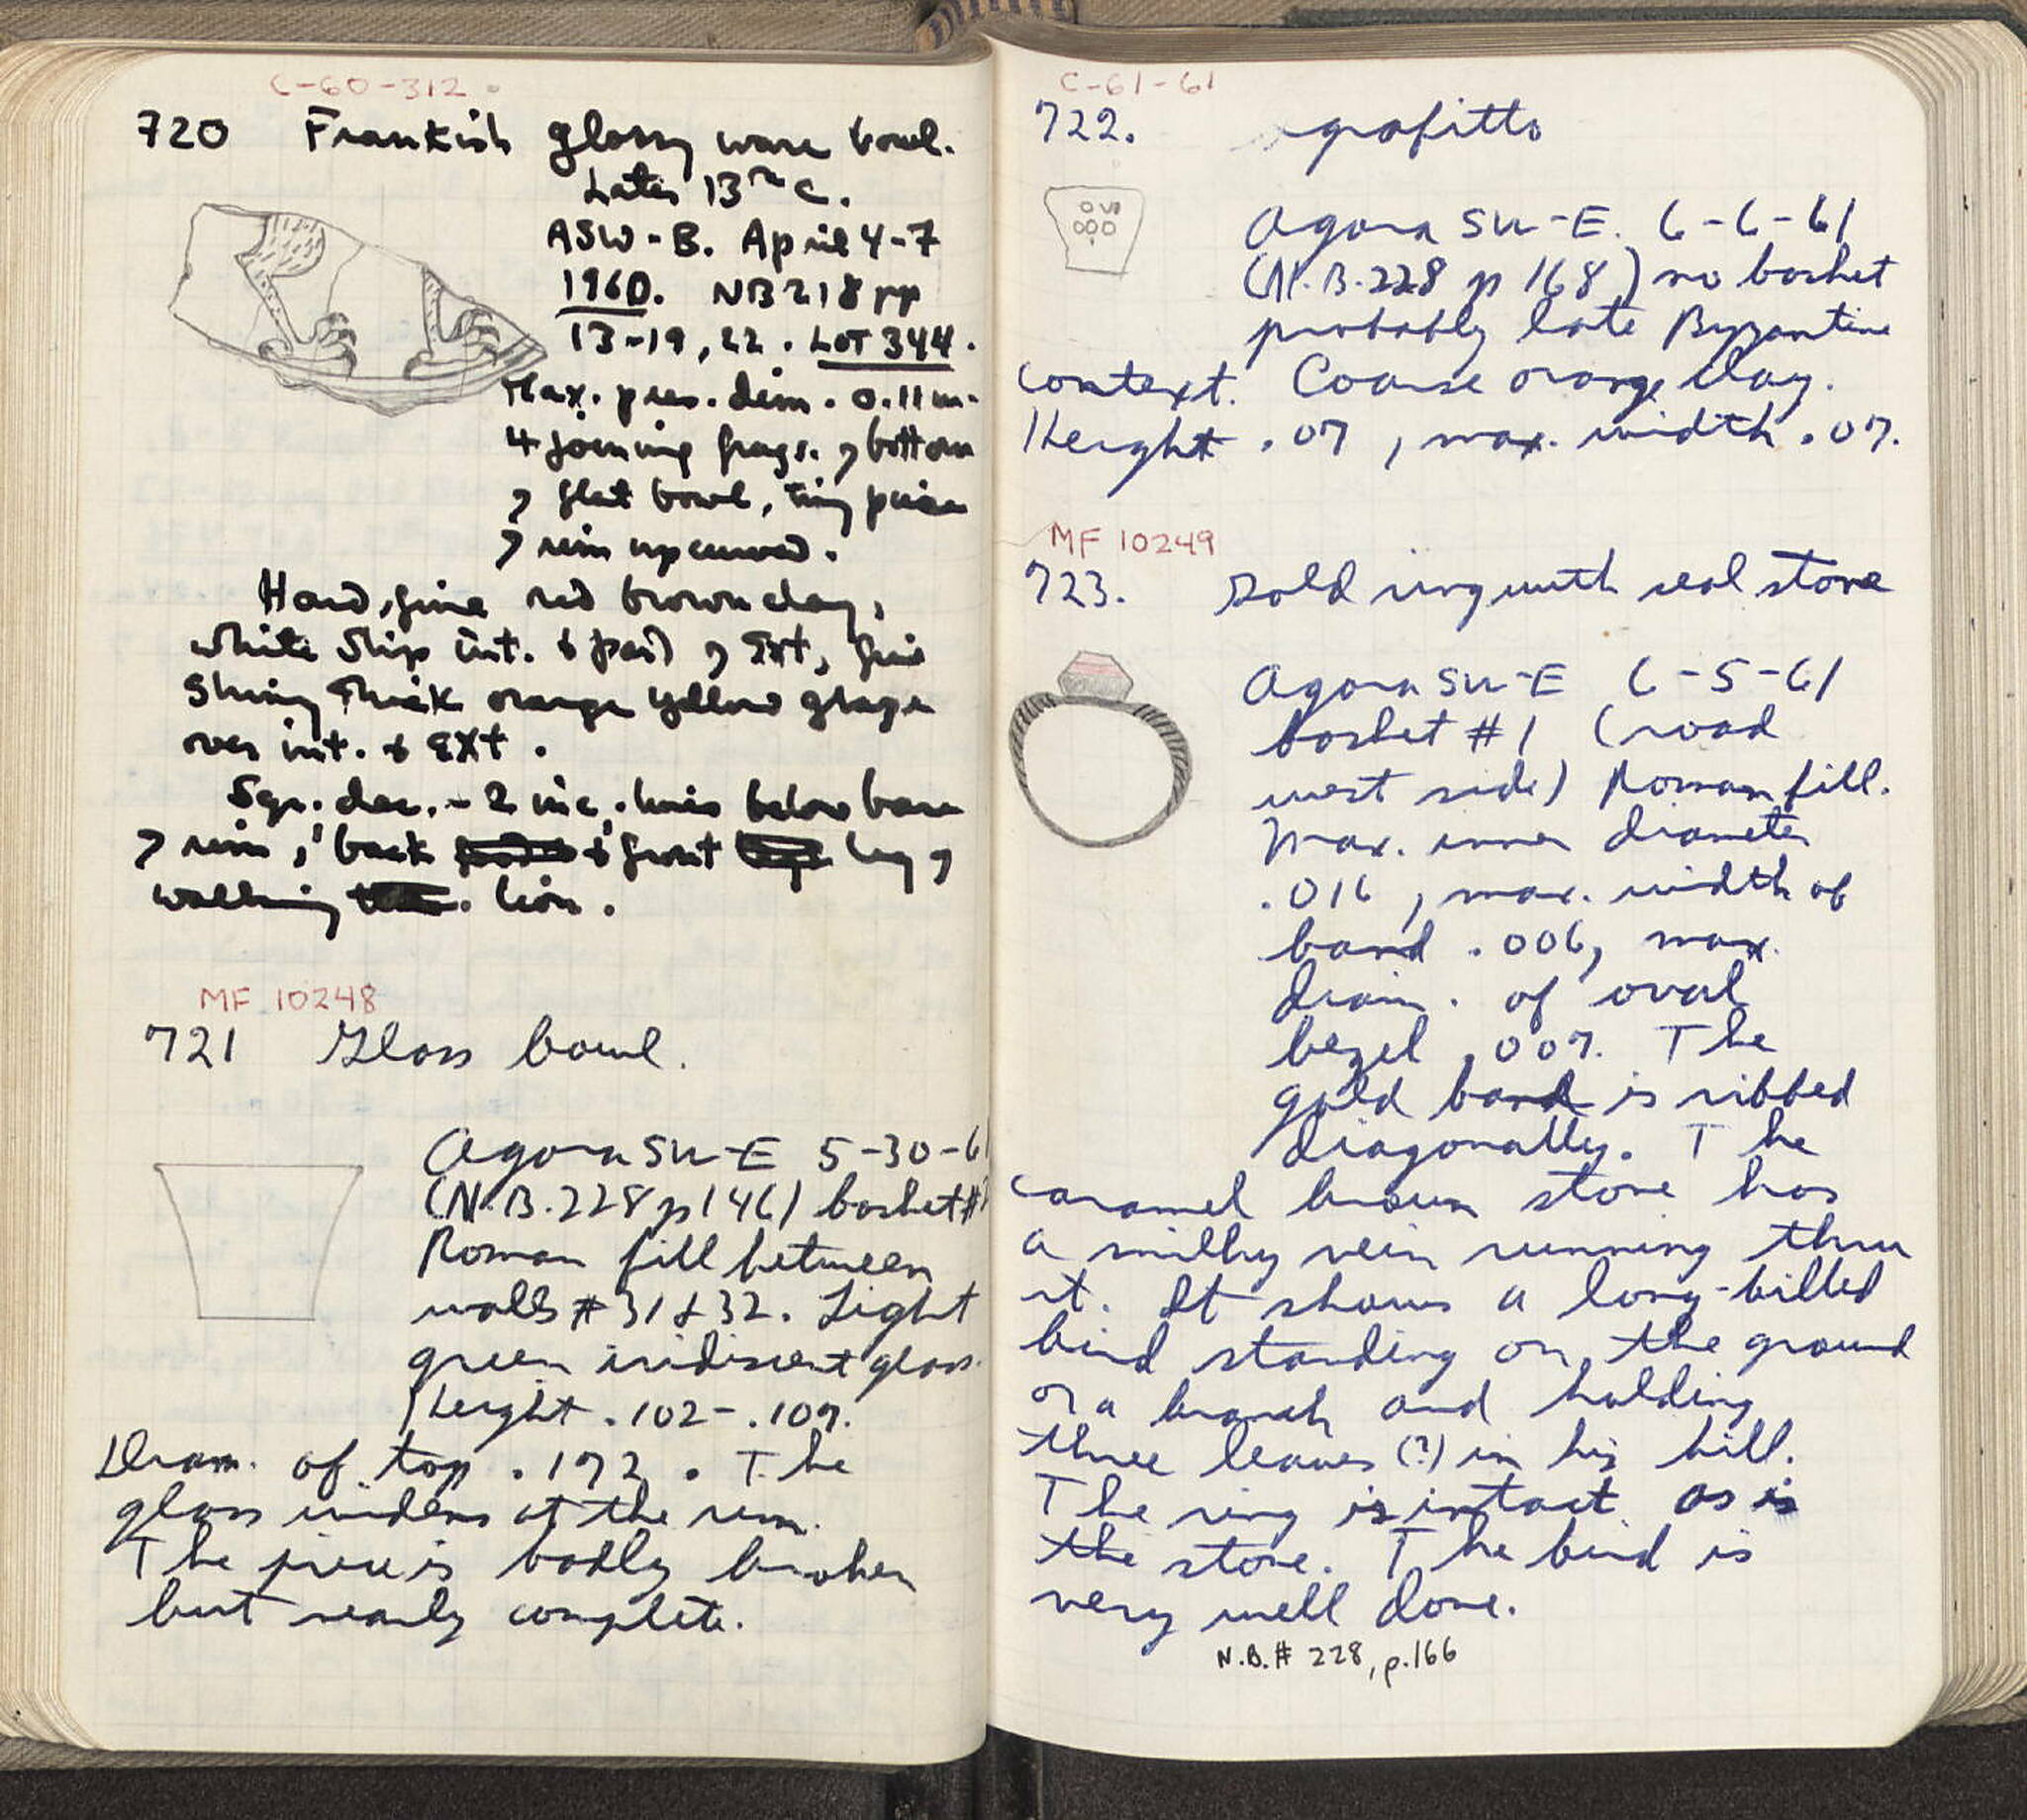 C-60-312
720 Frankish glossy ware bowl.
Later 13th c.
ASW-B. April 4-7
1960. NB 218 pp
13-19, 22. LOT 344.
Max. pres. dim. 0.11 m.
4 joining frags. of bottom
of flat bowl, tiny piece
of rim upcurved.
Hard, fine red brown clay,
white slip int. & part of Ext, fine
shiny thick orange yellow glaze
over int. & Ext.
Sgr. dec. - 2 inc. lines below base
of rim, back & front leg of
walking lion.
MF 10248
721 Glass bowl.
Agora SW-E 5-30-61
(N.B. 228 p 146) basket #1
Roman fill between
walls # 31 & 32. Light
green iridiscent glass.
Height .102-.107.
Diam. of top .172. The
glass widens at the rim.
The piece is badly broken
but nearly complete.
C-61-61
722. grafitto
OVO
OOO
Agora SW-E. 6-6-61
(N.B. 228 p 168) no basket
probably late Byzantine
context. Coarse orange clay.
Height .07, max. width .07.
MF 10249
723. Gold ring with seal stone
Agora SW-E 6-5-61
basket #1 (road
west side) Roman fill.
Max. inner diameter
.016, max. width of
band .006, max.
diam. of oval
bezel .007. The
gold band is ribbed
diagonally. The
caramel brown stone has
a milky vein running thru
it. It shows a long-billed
bird standing on the ground
or a branch and holding
three leaves (?) in his bill.
The ring is intact as is
the stone. The bird is
very well done.
N.B.# 228, p.166